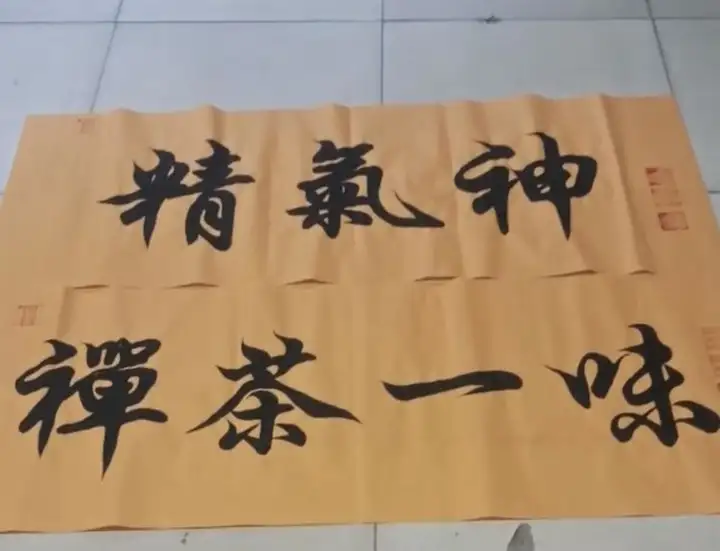 精氣神
禪茶一味